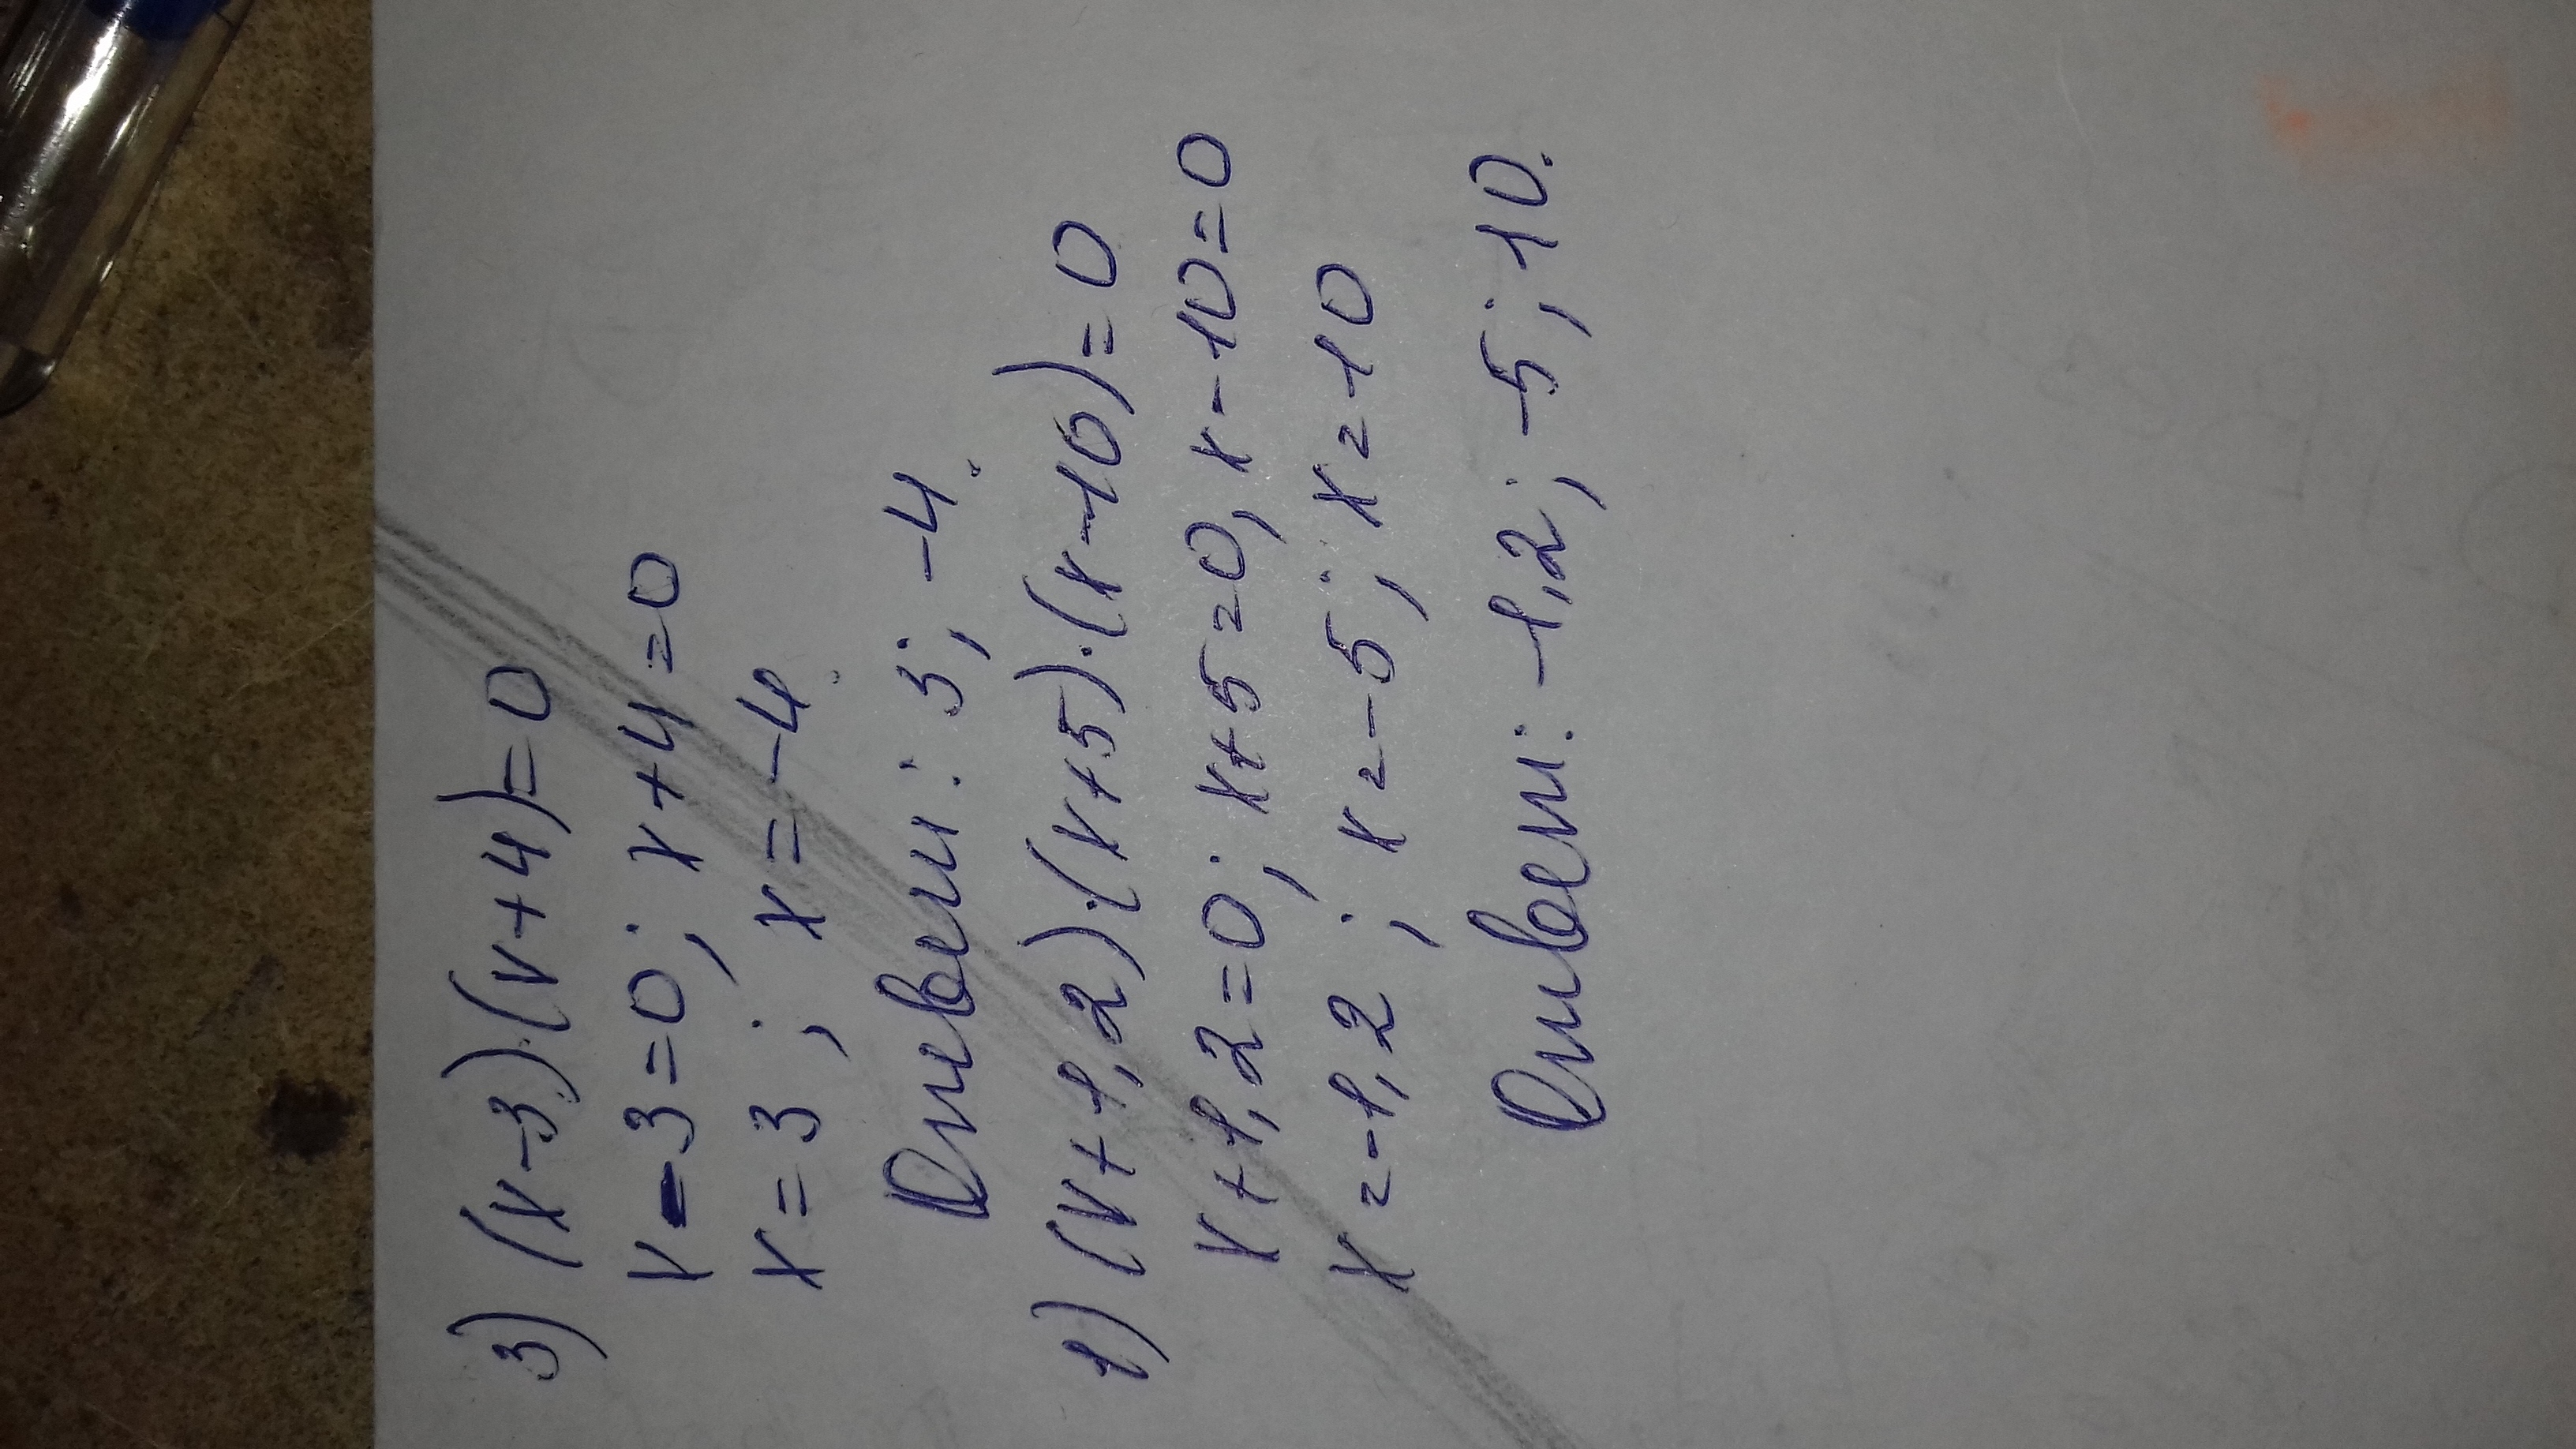 3) (x-3)·(x+4)=0
x-3=0; x+4=0
x=3; x=-4.
Ответ: 3; -4.
1) (x+1,2)·(x+5)·(x-10)=0
x+1,2=0; x+5=0, x-10=0
x=-1,2; x=-5; x=10
Ответ: -1,2; -5; 10.